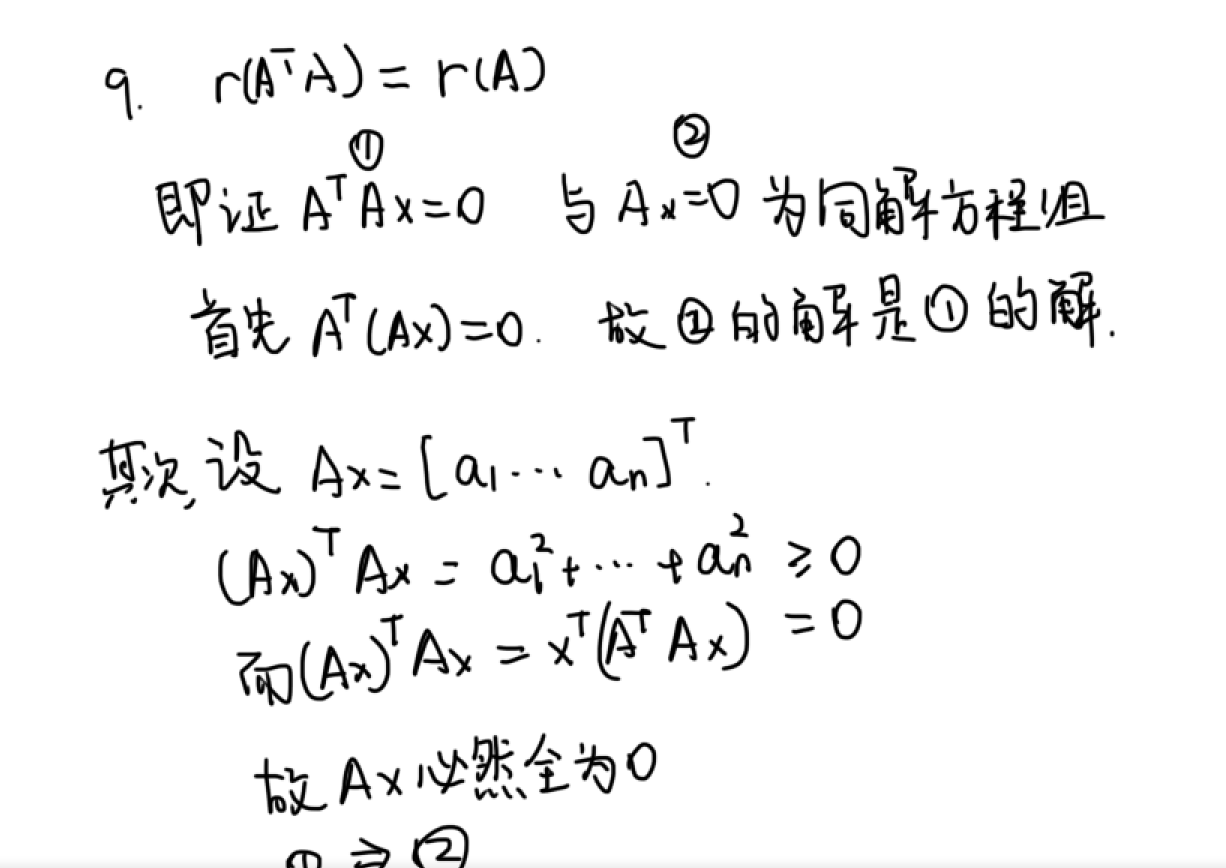 9. r(AᵀA) = r(A)
① ②
即证 AᵀAx=0 与 Ax=0 为同解方程组
首先 Aᵀ(Ax)=0. 故②的解是①的解.
其次, 设 Ax=[a₁⋯aₙ]ᵀ.
(Ax)ᵀAx = a₁²+⋯+aₙ² ≥ 0
而(Ax)ᵀAx = xᵀ(AᵀAx) = 0
故Ax必然全为0
①⇒②